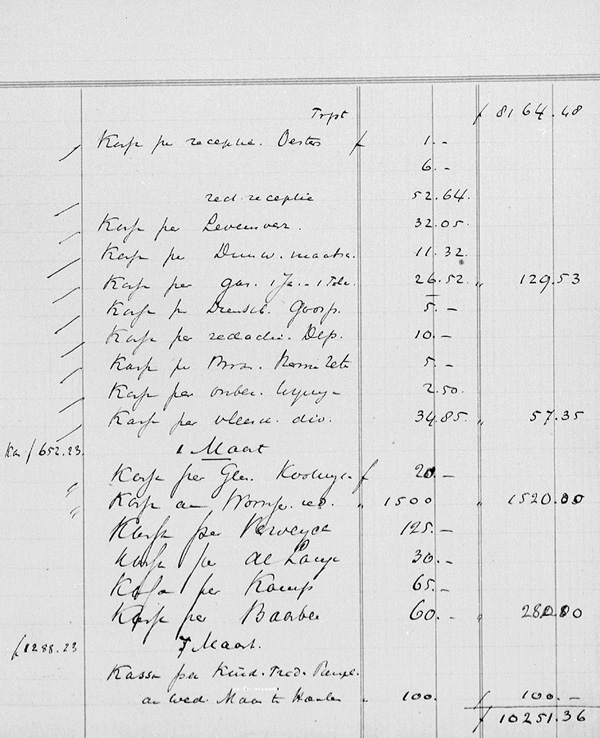 Trpt ƒ 8164.48
Kasse per receptie. Oesters ƒ 1.-
6.-
red. receptie 52.64.
Kasse per Levensver. 32.05.
Kasse per maats. 11.32.
Kasse per gas. 1 Ja. - 1 Febr. 26.52. " 129.53
Kasse per 5.-
Kasse per redactie. Dep. 10.-
Kasse per 5.-
Kasse per 2.50.
Kasse per vleesch. div. 34.85. " 57.35
Kas ƒ 652.23. 1 Maart
Kasse per Gem. ƒ 20.-
Kasse an " 1500 " 1520.00
Kasse per 125.-
Kasse per de Lange 30.-
Kasse per Kamp 65.-
Kasse per Baarbe 60.- " 280.00
ƒ 1288.23 7 Maart.
Kassa per Kind. Fred.
an wed. Maas te " 100. ƒ 100.-
ƒ 10251.36